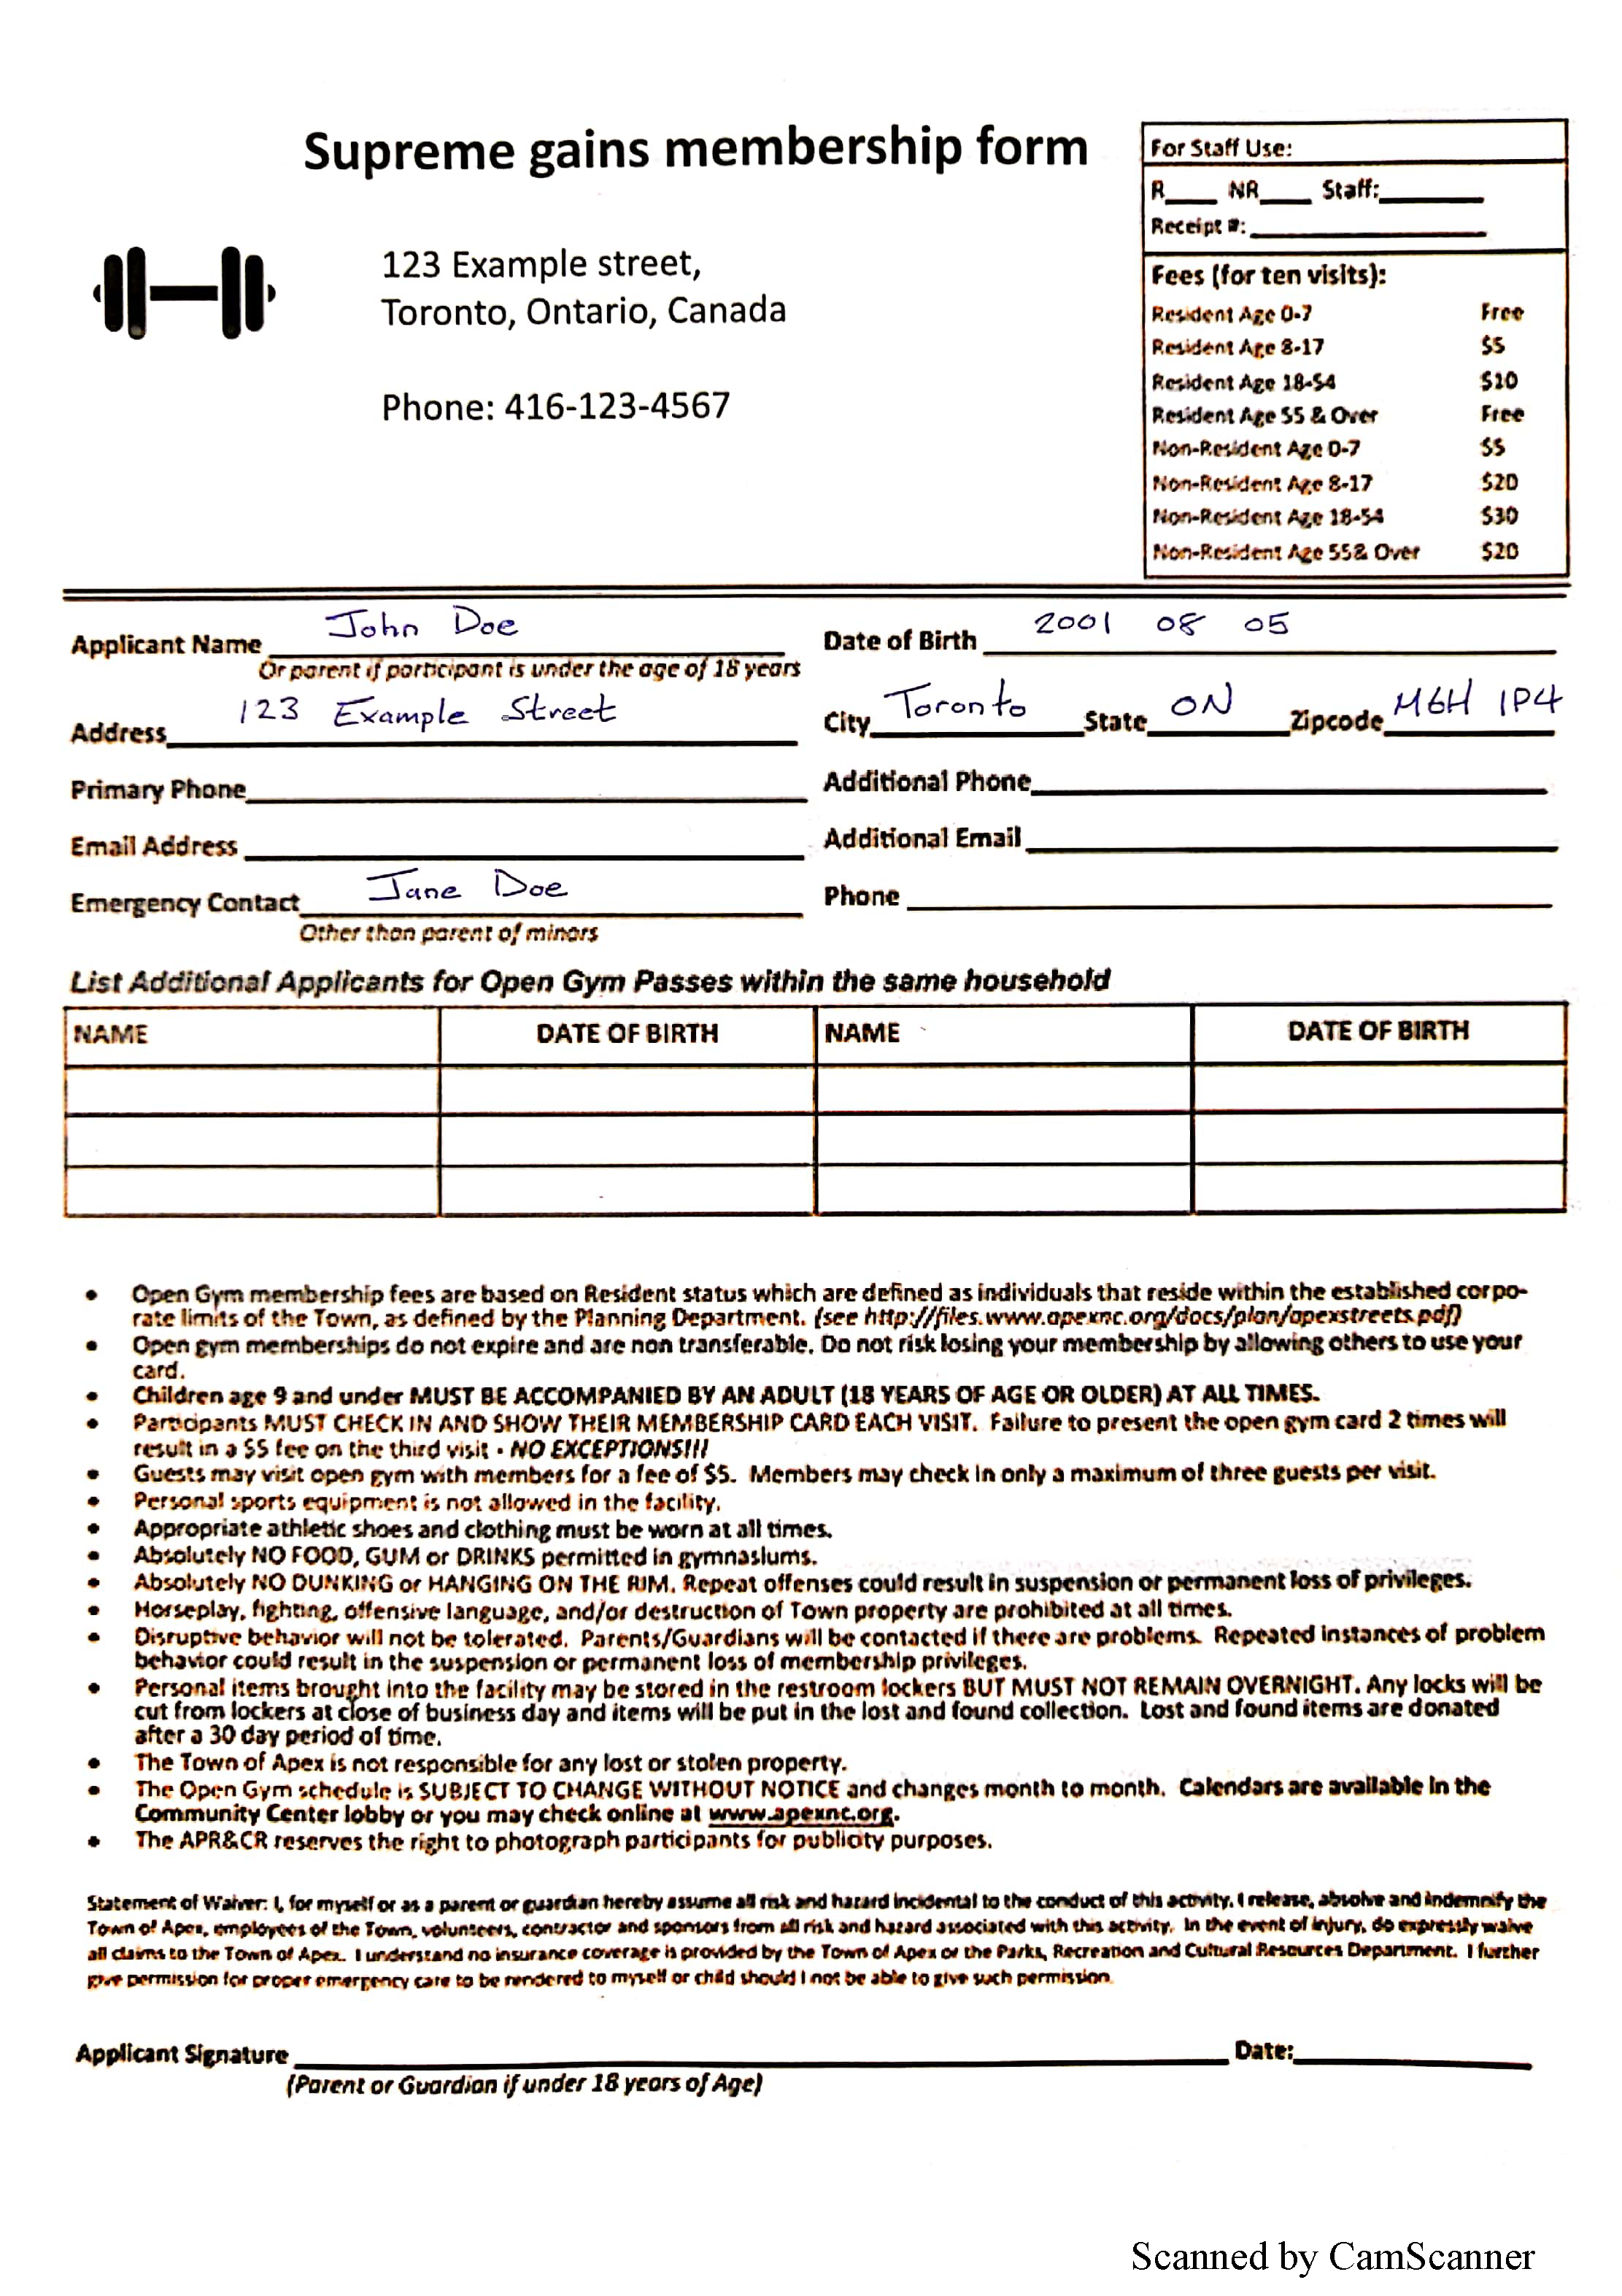 Supreme gains membership form
123 Example street,
Toronto, Ontario, Canada
Phone: 416-123-4567
For Staff Use:
R____ NR____ Staff:________
Receipt #:__________________
Fees (for ten visits):
Resident Age 0-7 Free
Resident Age 8-17 $5
Resident Age 18-54 $10
Resident Age 55 & Over Free
Non-Resident Age 0-7 $5
Non-Resident Age 8-17 $20
Non-Resident Age 18-54 $30
Non-Resident Age 55& Over $20
Applicant Name John Doe Date of Birth 2001 08 05
Or parent if participant is under the age of 18 years
Address 123 Example Street City Toronto State ON Zipcode M6H 1P4
Primary Phone Additional Phone
Email Address Additional Email
Emergency Contact Jane Doe Phone
Other than parent of minors
List Additional Applicants for Open Gym Passes within the same household
NAME DATE OF BIRTH NAME DATE OF BIRTH
• Open Gym membership fees are based on Resident status which are defined as individuals that reside within the established corpo-
rate limits of the Town, as defined by the Planning Department. (see http://files.www.apexnc.org/docs/plan/apexstreets.pdf)
• Open gym memberships do not expire and are non transferable. Do not risk losing your membership by allowing others to use your
card.
• Children age 9 and under MUST BE ACCOMPANIED BY AN ADULT (18 YEARS OF AGE OR OLDER) AT ALL TIMES.
• Participants MUST CHECK IN AND SHOW THEIR MEMBERSHIP CARD EACH VISIT. Failure to present the open gym card 2 times will
result in a $5 fee on the third visit - NO EXCEPTIONS!!!
• Guests may visit open gym with members for a fee of $5. Members may check in only a maximum of three guests per visit.
• Personal sports equipment is not allowed in the facility.
• Appropriate athletic shoes and clothing must be worn at all times.
• Absolutely NO FOOD, GUM or DRINKS permitted in gymnasiums.
• Absolutely NO DUNKING or HANGING ON THE RIM. Repeat offenses could result in suspension or permanent loss of privileges.
• Horseplay, fighting, offensive language, and/or destruction of Town property are prohibited at all times.
• Disruptive behavior will not be tolerated. Parents/Guardians will be contacted if there are problems. Repeated instances of problem
behavior could result in the suspension or permanent loss of membership privileges.
• Personal items brought into the facility may be stored in the restroom lockers BUT MUST NOT REMAIN OVERNIGHT. Any locks will be
cut from lockers at close of business day and items will be put in the lost and found collection. Lost and found items are donated
after a 30 day period of time.
• The Town of Apex is not responsible for any lost or stolen property.
• The Open Gym schedule is SUBJECT TO CHANGE WITHOUT NOTICE and changes month to month. Calendars are available in the
Community Center lobby or you may check online at www.apexnc.org.
• The APR&CR reserves the right to photograph participants for publicity purposes.
Statement of Waiver: I, for myself or as a parent or guardian hereby assume all risk and hazard incidental to the conduct of this activity. I release, absolve and indemnify the
Town of Apex, employees of the Town, volunteers, contractor and sponsors from all risk and hazard associated with this activity. In the event of injury, do expressly waive
all claims to the Town of Apex. I understand no insurance coverage is provided by the Town of Apex or the Parks, Recreation and Cultural Resources Department. I further
give permission for proper emergency care to be rendered to myself or child should I not be able to give such permission.
Applicant Signature Date:
(Parent or Guardian if under 18 years of Age)
Scanned by CamScanner